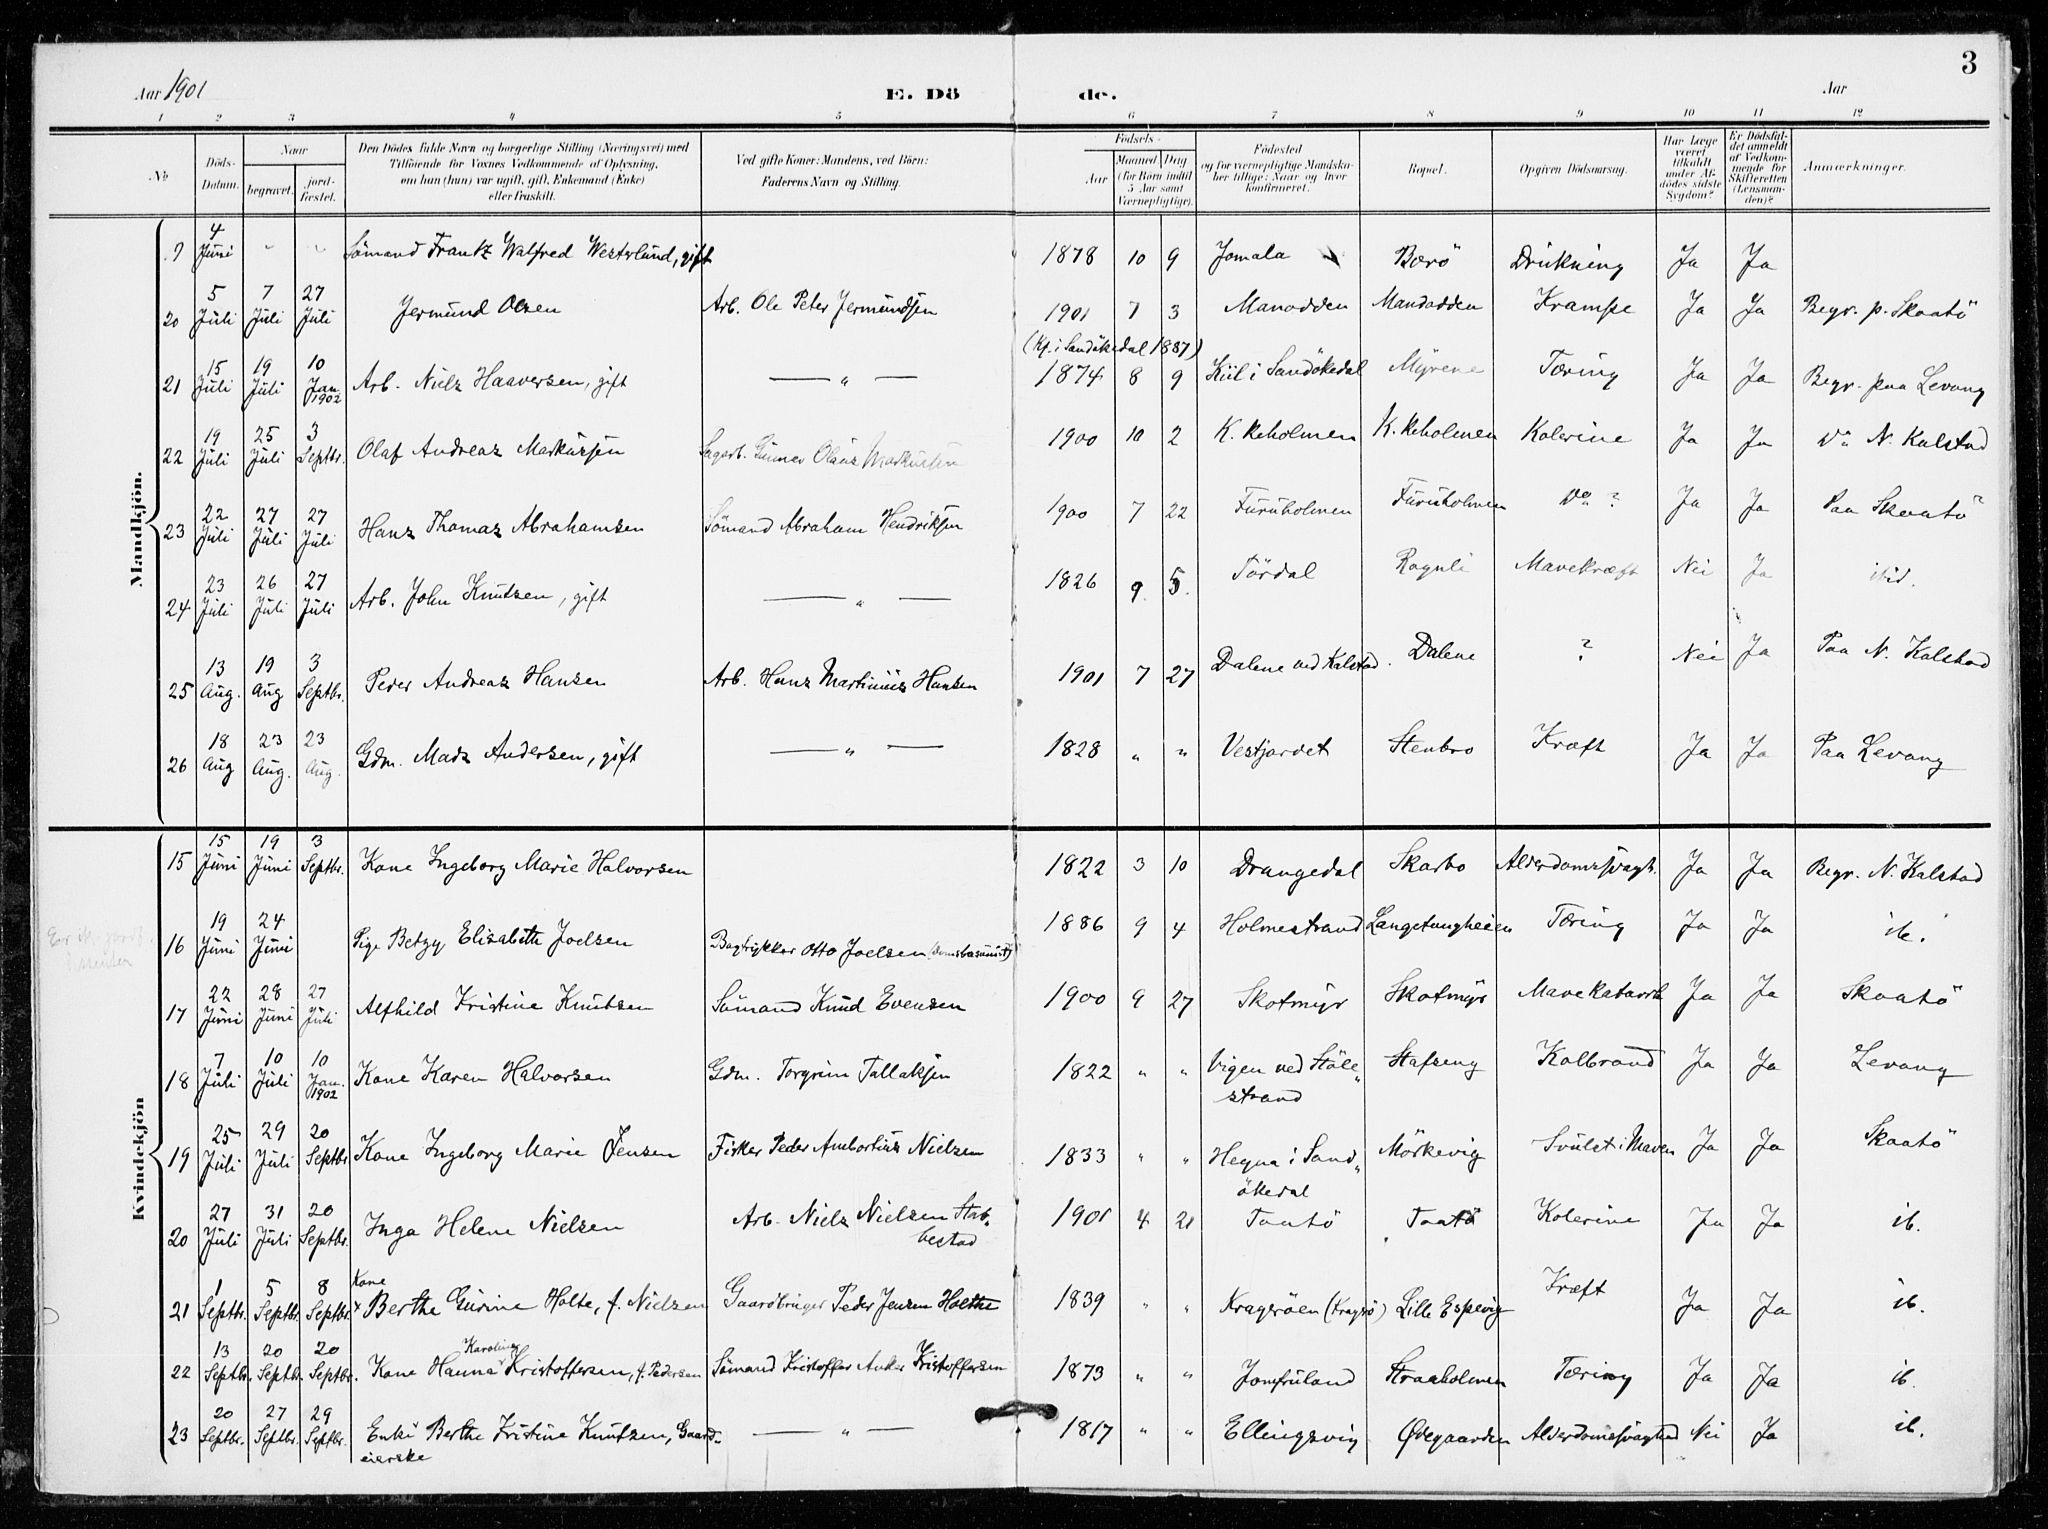 3
Aar 1901 E. Dö de. Aar
1 2 3 4 5 6 7 8 9 10 11 12
No
Döds-Datum.
Naar
begravet.
jordfæstet.
Den Dödes fulde Navn og borgerlige Stilling (Næringsvei) med
Tilföiende for Voxnes Vedkommende af Oplysning,
om han (hun) var ugift, gift, Enkemand (Enke)
eller fraskilt.
Ved gifte Koner: Mandens, ved Börn:
Faderens Navn og Stilling.
Födsels-
Aar
Maaned Dag
(for Börn indtil
5 Aar samt
Værnepligtige).
Födested
og for værnepligtige Mandska-
ber tillige: Naar og hvor
konfirmeret.
Bopæl.
Opgiven Dödsaarsag.
Har Læge
været
tilkaldt
under Af-
dödes sidste
Sygdom?
Er Dödsfal-
det anmeldt
af Vedkom-
mende for
Skifteretten
(Lensman-
den)?
Anmærkninger.
Mandkjön.
4 Juni " " Sömand Frantz Walfred Westerlund, gift 1878 10 9 Jomala Borö Drukning Ja Ja
20 5 Juli 7 Juli 27 Juli Jermund Olsen Arb. Ole Peter Jermundsen 1901 7 3 Manodden Mandodden Krampe Ja Ja Begr. p. Skaatö
(Kf. i Sandökedal 1887)
21 15 Juli 19 Juli 10 Jan. 1902 Arb. Niels Haaversen, gift — " — 1874 8 9 Kiil i Sandökedal Myrene Tæring Ja Ja Begr. paa Levang
22 19 Juli 25 Juli 3 Septbr. Olaf Andreas Markussen Sagarb. Gunner Olaus Markussen 1900 10 2 K. Reholmen K. Reholmen Kolerine Ja Ja Do N. Kalstad
23 22 Juli 27 Juli 27 Juli Hans Thomas Abrahamsen Sömand Abraham Hendriksen 1900 7 22 Furuholmen Furuholmen Do ? Ja Ja Paa Skaatö
24 23 Juli 26 Juli 27 Juli Arb. John Knutsen, gift — " — 1826 9. 5. Tördal Rognli Mavekræft Nei Ja ibid.
25 13 Aug. 19 Aug 3 Septbr. Peder Andreas Hansen Arb. Hans Martinius Hansen 1901 7 27 Dalene ved Kalstad. Dalene ? Nei Ja Paa N. Kalstad
26 18 Aug 23 Aug. 23 Aug. Gdm. Mads Andersen, gift — " — 1828 " " Vestjordet Stenbro Kræft Ja Ja Paa Levang
Kvindekjön
15 15 Juni 19 Juni 3 Septbr. Kone Ingeborg Marie Halvorsen 1822 3 10 Drangedal Skarbo Alderdomssvagh. Ja Ja Begr. N. Kalstad
16 19 Juni 24 Juni Pige Betzy Elisabeth Joelsen Bogtrykker Otto Joelsen 1886 9 4 Holmestrand Langetangheien Tæring Ja Ja ib.
17 22 Juni 28 Juni 27 Juli Alfhild Kristine Knutsen Sömand Knud Evensen 1900 9 27 Skotmyr Skotmyr Mavekatarrh Ja Ja Skaatö
18 7 Juli 10 Juli 10 Jan. 1902 Kone Karen Halvorsen Gdm. Torgrim Tallaksen 1822 " " Vigen ved Stöle-
strand Stafseng Kolbrand Ja Ja Levang
19 25 Juli 29 Juli 20 Septbr Kone Ingeborg Marie Jensen Fisker Peder Ambortius Nielsen 1833 " " Hegna i Sand-
ökedal Mörkevig Svulst i Maven Ja Ja Skaatö
20 27 Juli 31 Juli 20 Septbr. Inga Helene Nielsen Arb. Niels Nielsen Stab-
bestad 1901 4 21 Taatö Taatö Kolerine Ja Ja ib.
Kone
21 1 Septbr. 5 Septbr. 8 Septbr. Berthe Gurine Holte, f. Nielsen Gaardbruger Peder Jensen Holthe 1839 " " Kragerøen (Kragrö) Lille Espevig Kræft Ja Ja ib.
Karoline
22 13 Septbr. 20 Septbr. 20 Septbr. Kone Hanna Kristoffersen, f. Pedersen Sömand Kristoffer Anker Kristoffersen 1873 " " Jomfruland Straaholmen Tæring Ja Ja ib.
23 20 Septbr. 27 Septbr. 29 Septbr. Enke Berthe Kristine Knutsen, Gaard-
eierske — " — 1817 " " Ellingsvig Ødegaarden Alderdomssvaghed Nei Ja ib.